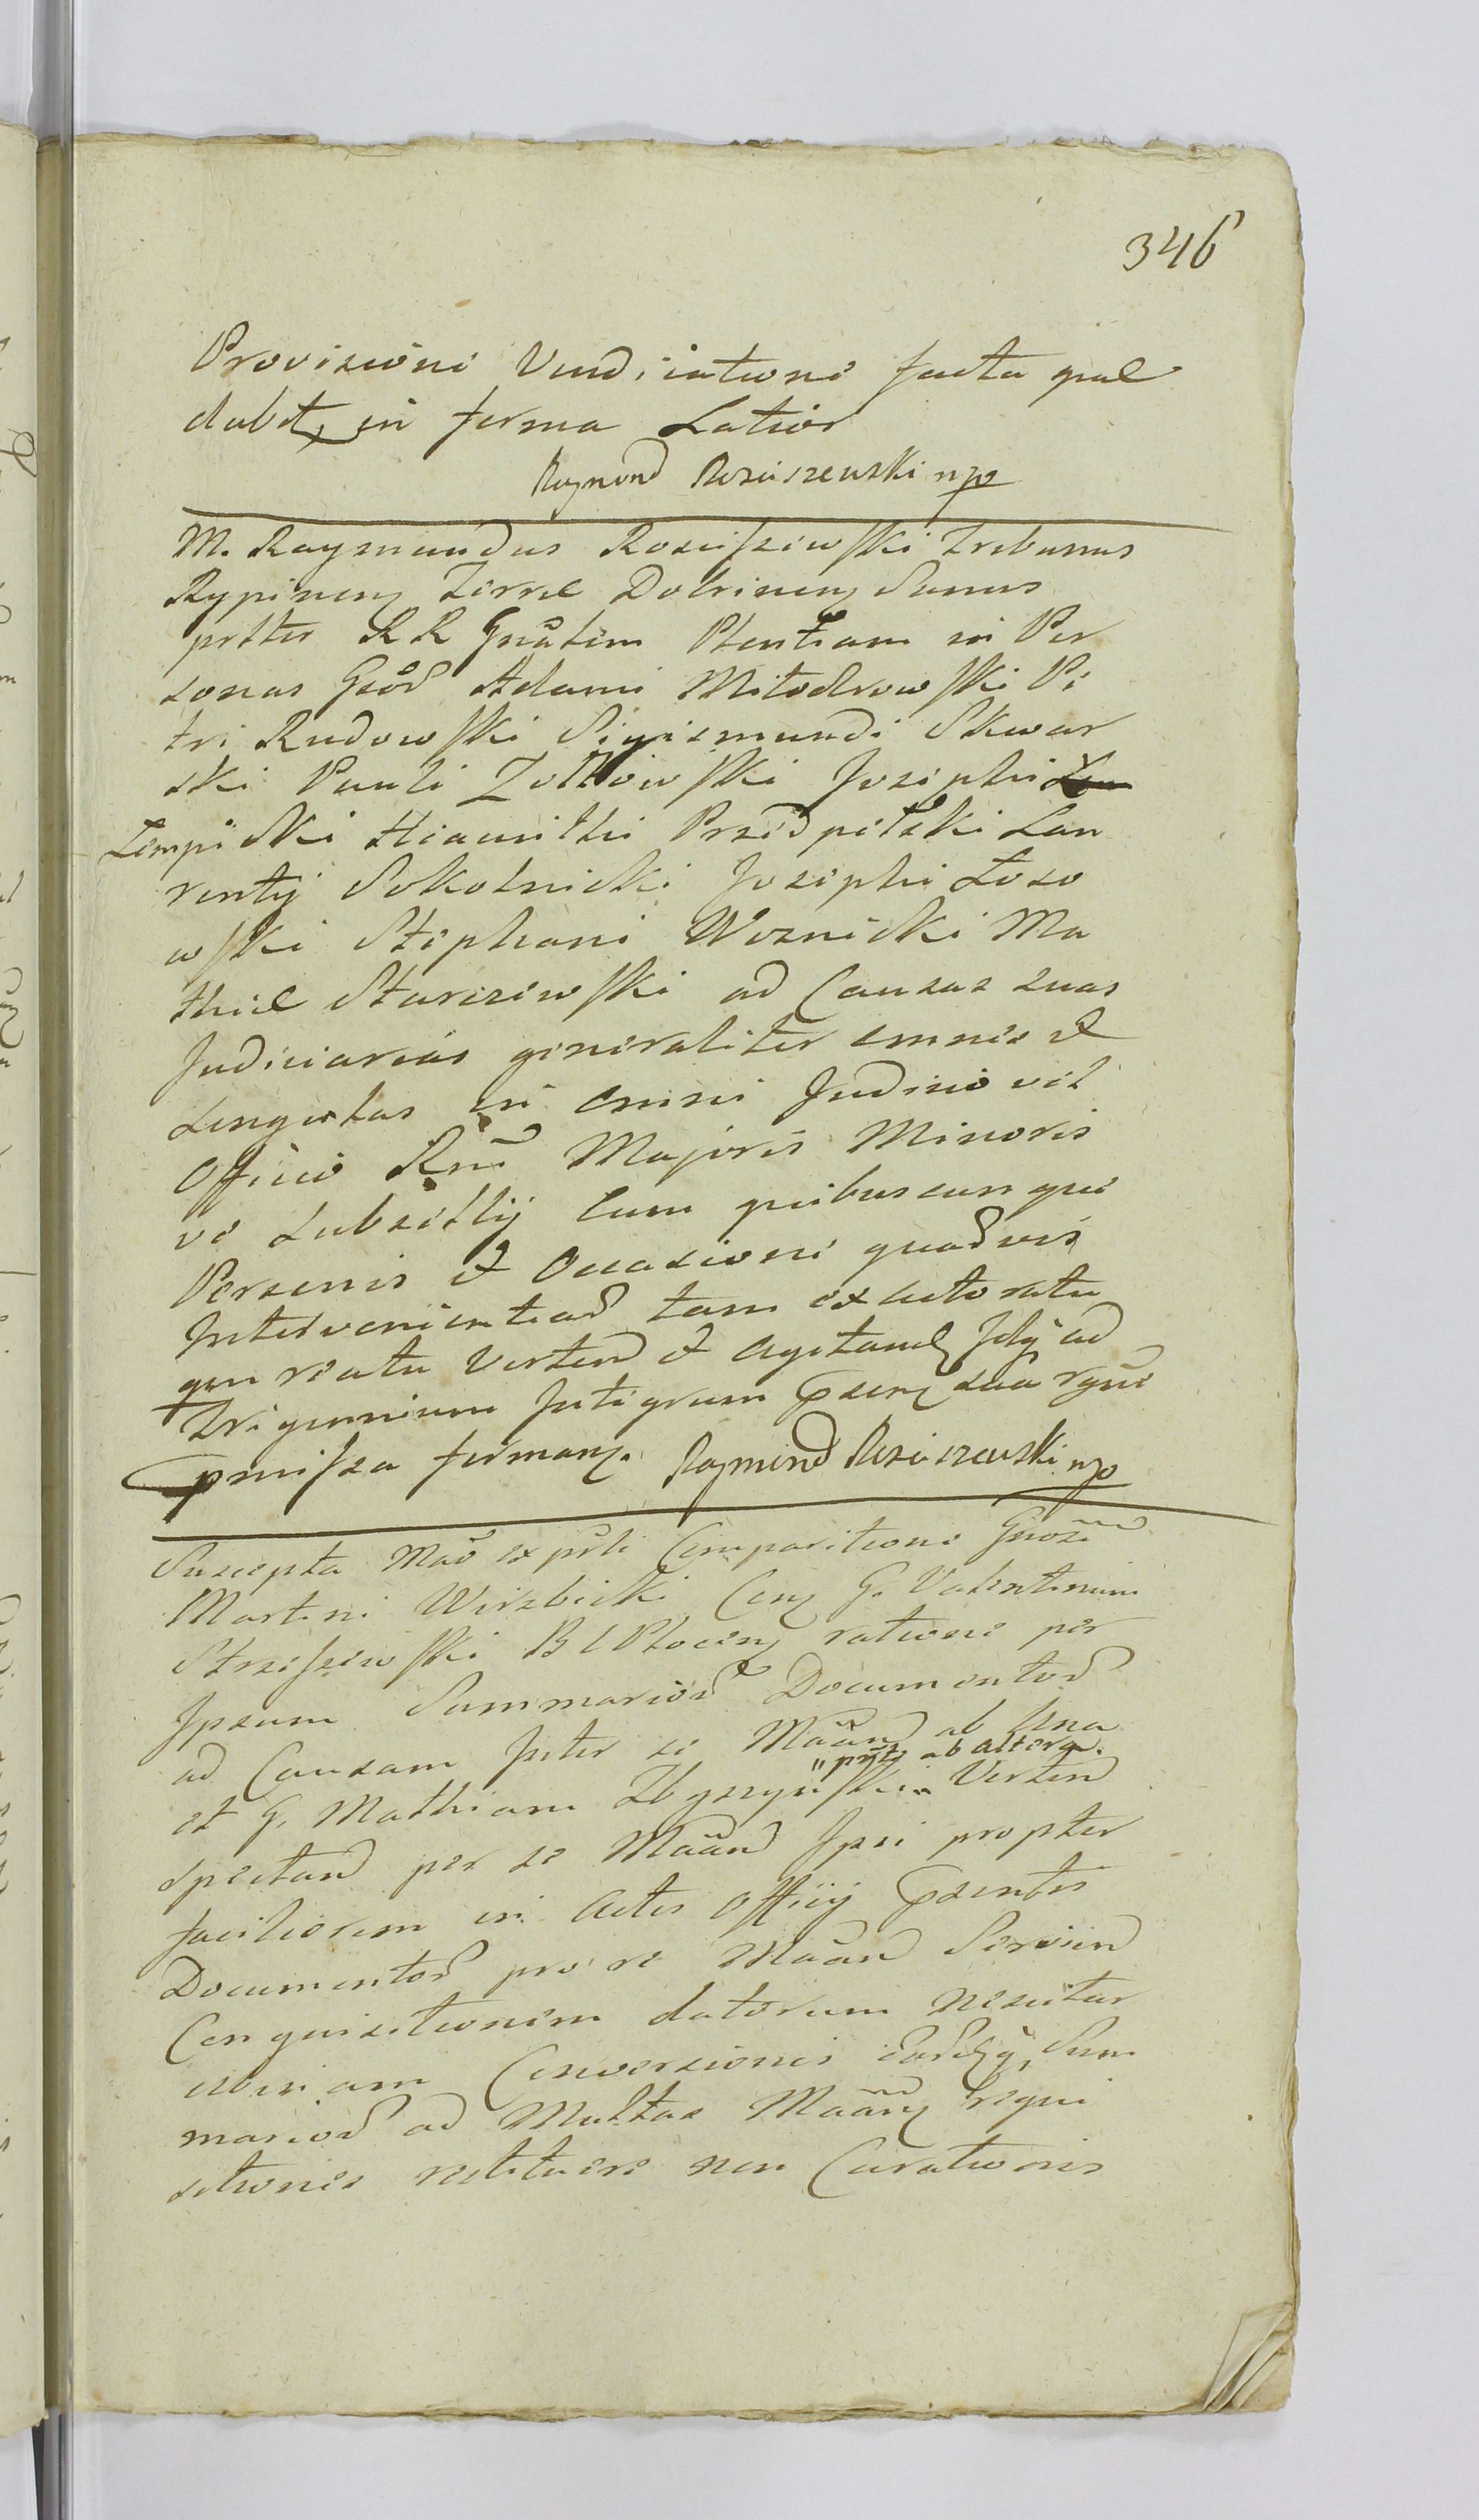 346
Provisione Vendicatione facta quæ
dabit, in forma Latior
Raymond Rościszewski mp
M. Raymundus Rosciszewski Tribunus
Rypinen Terræ Dobrinen Sanus
prtter RR Gnãlem Plentiam in Per
sonas Gsõr Adami Miłodrowski Pe
tri Rudowski Sigismundi Skwar
ski Pauli Zołtowski Josephi
Łempicki Hiacinthi Przedpełski Lau
rentij Sokolnicki Josephi Łoso
wski Stephani Woznicki Ma
thiæ Starczewski ad Causas suas
Judiciarias generaliter omnes et
singulas in omni Judicio vel
Officio Rni Majoris Minoris
ve Subsellij Cum quibuscunque
Personis et Occasione quadvis
Intervenientiad tam ex actoratu
qm reatu Verten et agitand Idq ad
Trigennium Integrum suã rgne
pmissa forman. Raymond Rościszewski mp
Suscepta Mão ex prli Comparitione Gnosi
Martini Wierzbicki Con G. Valentinum
Strzeszewski B C Plocen ratione per
Ipsum Summarior Documentor
ad Causam Inter se Mãan ab Una
et G. Mathiam Zbyszynski Verten
"prte ab altera.
Spectan per se Mãan Ipsi propter
faciliorem in Actis Officij
Documentor pro re Mãan Servien
Conquisitionem datorum nescitur
Conversionis Sum
marior ad Multas Mãan requi
sitiones restituere non Curationis